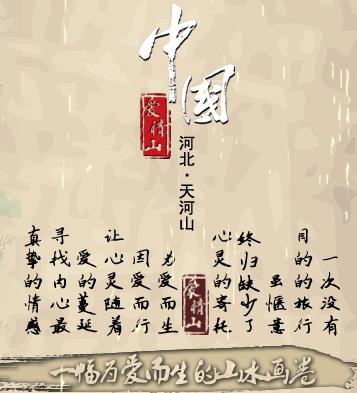 中国
爱情山
河北·天河山
一次没有
目的的旅行
虽惬意
终归缺少了
心灵的寄托
爱情山
为爱而生
因爱而行
让心灵随着
爱的蔓延
寻找内心最
真挚的情感
一幅为爱而生的山水画卷